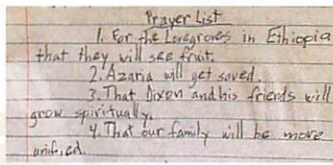 Prayer List
1. For the Lovegroves in Ethiopia
that they will see fruit.
2. Azaria will get saved.
3. That Dixon and his friends will
grow spiritually.
4. That our family will be more
unified.